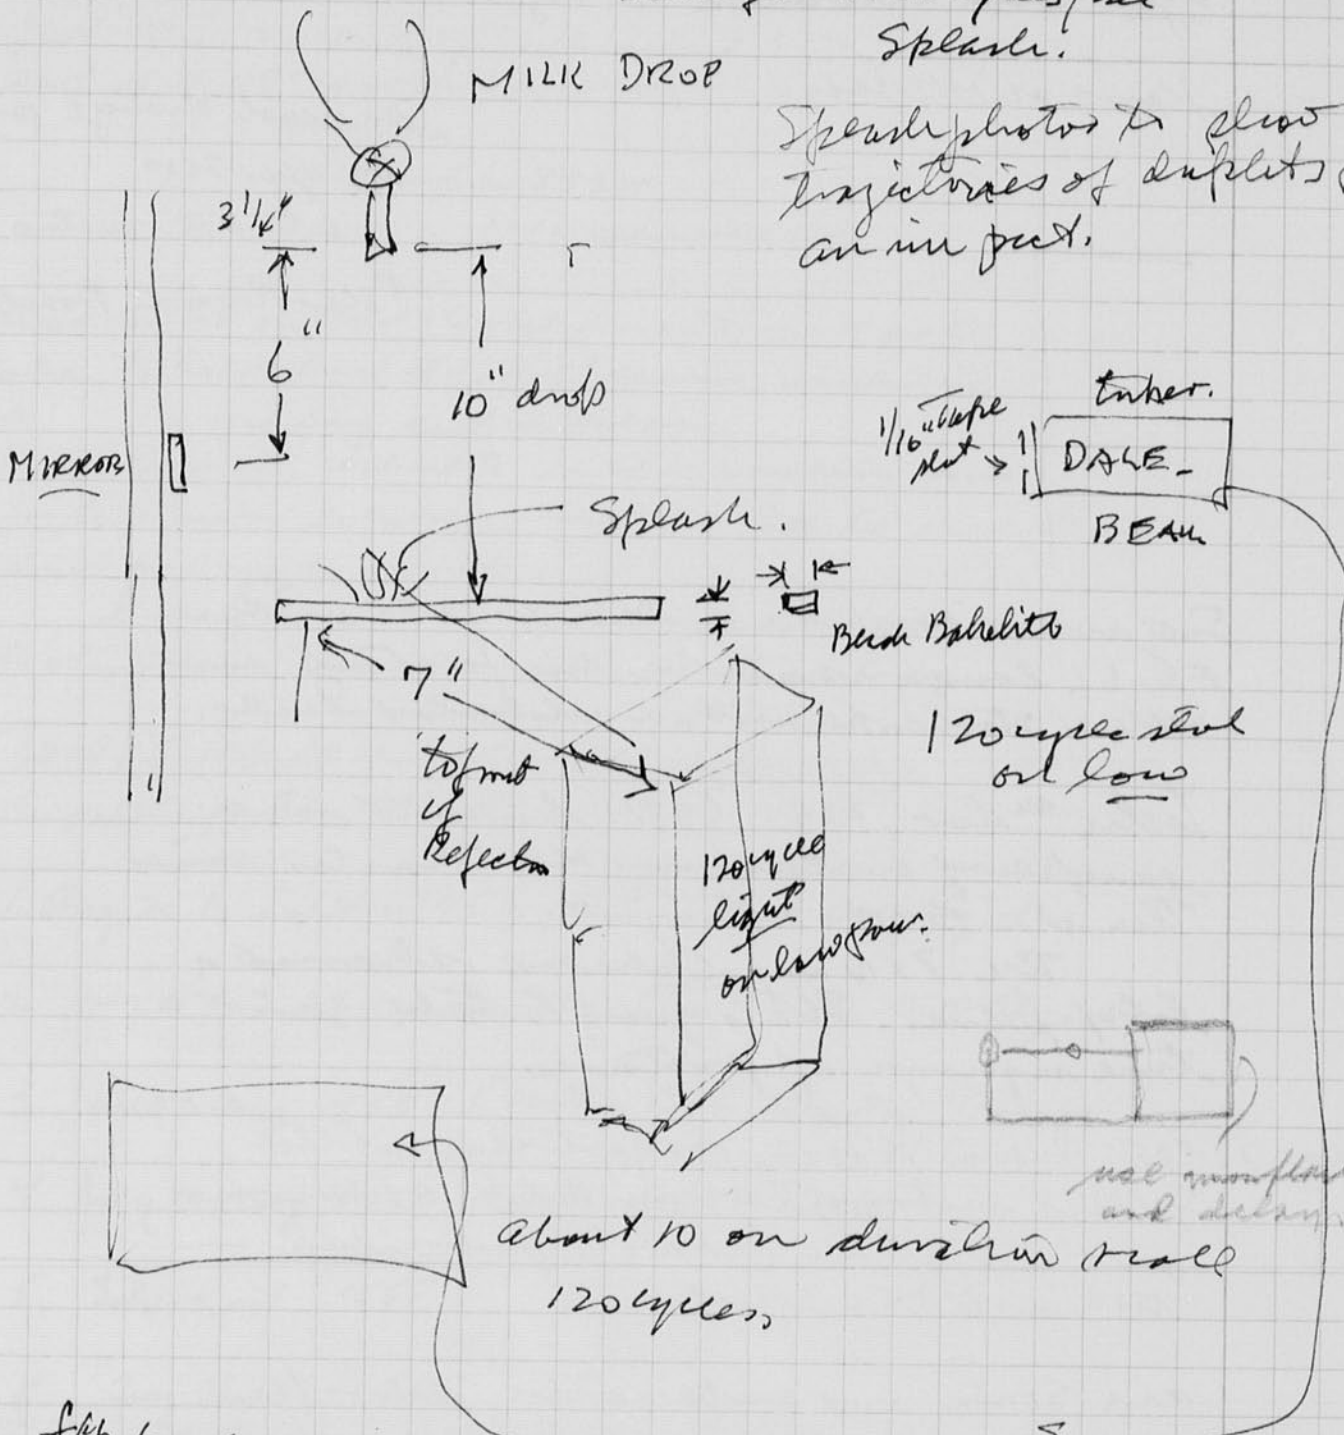 Splash.
MILK DROP
Splash photos to show
trajectories of droplets
an impact.
3 1/4"
6"
10" drop
MIRROR
1/16" tape
slot
DALE
BEAM
Splash.
7"
Bakelite
to front
of
Reflector
120 cycle
light
on low pow.
120 cycle
on low
use
and delay
About 10 on duration scale
120 cycles